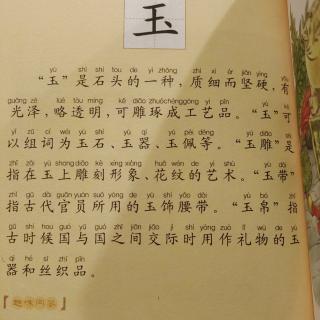 玉
yù shì shí tou de yì zhǒng zhì xì ér jiān yìng yǒu
“玉”是石头的一种，质细而坚硬，有
guāng zé lüè tòu míng kě diāo zhuó chéng gōng yì pǐn yù kě
光泽，略透明，可雕琢成工艺品。“玉”可
yǐ zǔ cí wéi yù shí yù qì yù pèi děng yù diāo shì
以组词为玉石、玉器、玉佩等。“玉雕”是
zhǐ zài yù shang diāo kè xíng xiàng huā wén de yì shù yù dài
指在玉上雕刻形象、花纹的艺术。“玉带”
zhǐ gǔ dài guān yuán suǒ yòng de yù shì yāo dài yù bó zhǐ
指古代官员所用的玉饰腰带。“玉帛”指
gǔ shí hou guó yǔ guó zhī jiān jiāo jì shí yòng zuò lǐ wù de yù
古时候国与国之间交际时用作礼物的玉
qì hé sī zhī pǐn
器和丝织品。